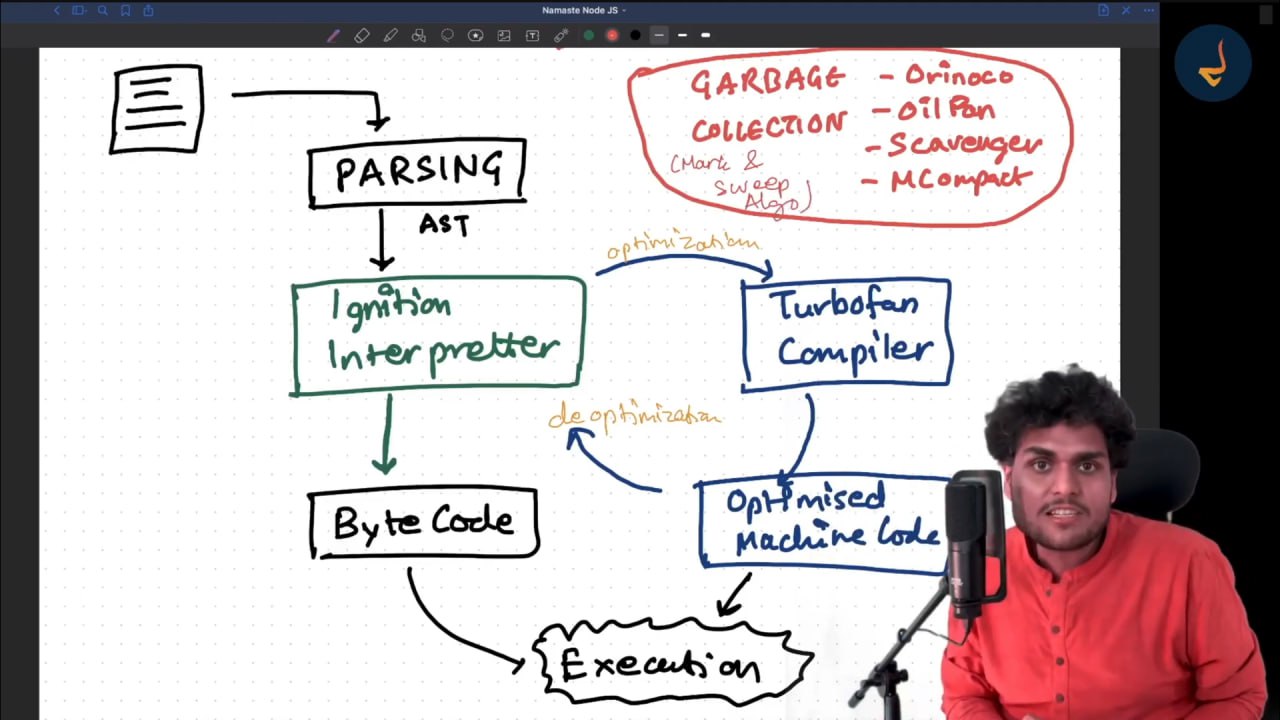 Namaste Node JS
GARBAGE
COLLECTION
(Mark &
Sweep
Algo)
- Orinoco
- Oil Pan
- Scavenger
- MCompact
PARSING
AST
optimization
Ignition
Interpretter
Turbofan
Compiler
deoptimization
Byte Code
Optimised
Machine Code
Execution